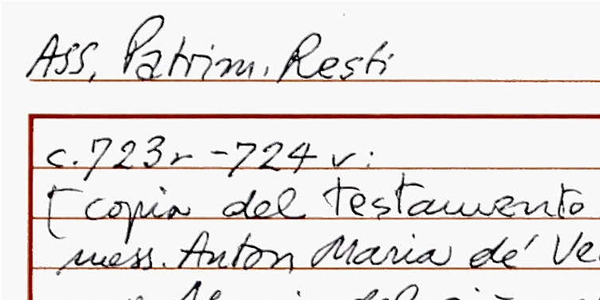 Ass. Patrim. Resti
c. 723r - 724v:
[copia del testamento
mess. Anton Maria de' Ve
del